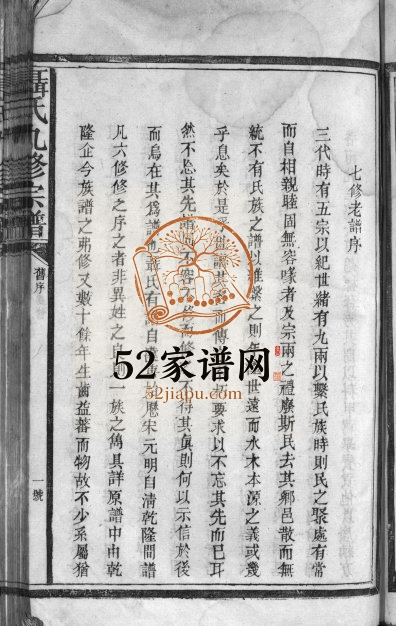 七修老譜序
三代時有五宗以紀世緒有九兩以繫氏族時則民之聚處有常
而自相親睦固無容喙者及宗兩之禮廢斯民去其鄉邑散而無
統不有氏族之譜以維繫之則年 世遠而水木本源之義或幾
乎息矣於是乎世 譜其 而傳 要求以不忘其先而已耳
然不忘其先譜固不容不修而修 不得其真則何以示信於後
而烏在其為譜 聶氏有 自 歷宋元明自清乾隆間譜
凡六修修之序之者非異姓之 一族之雋具詳原譜中由乾
隆企今族譜之弗修又數十餘年生齒益蕃而物故不少系屬猶
聶氏九修宗譜
舊序
一號
52家谱网
52jiapu.com